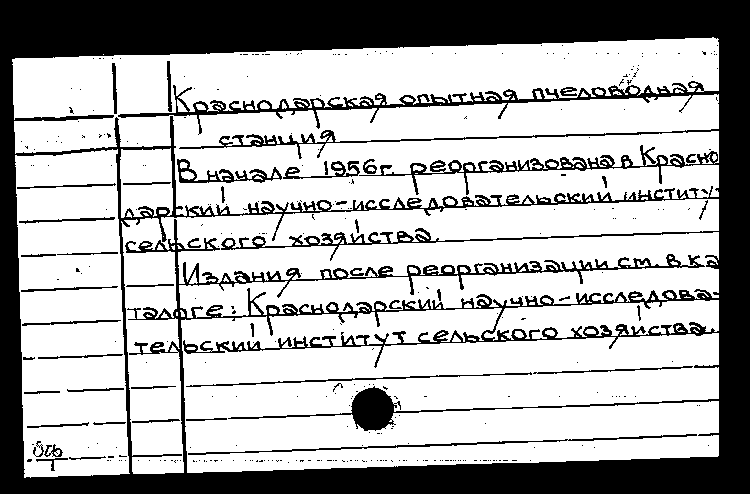 Краснодарская опытная пчеловодная
станция
В начале 1956г. реорганизована в Красно
дарский научно-исследовательский институт
сельского хозяйства.
Издания после реорганизации см. в ка
талоге: Краснодарский научно-исследова-
тельский институт сельского хозяйства.